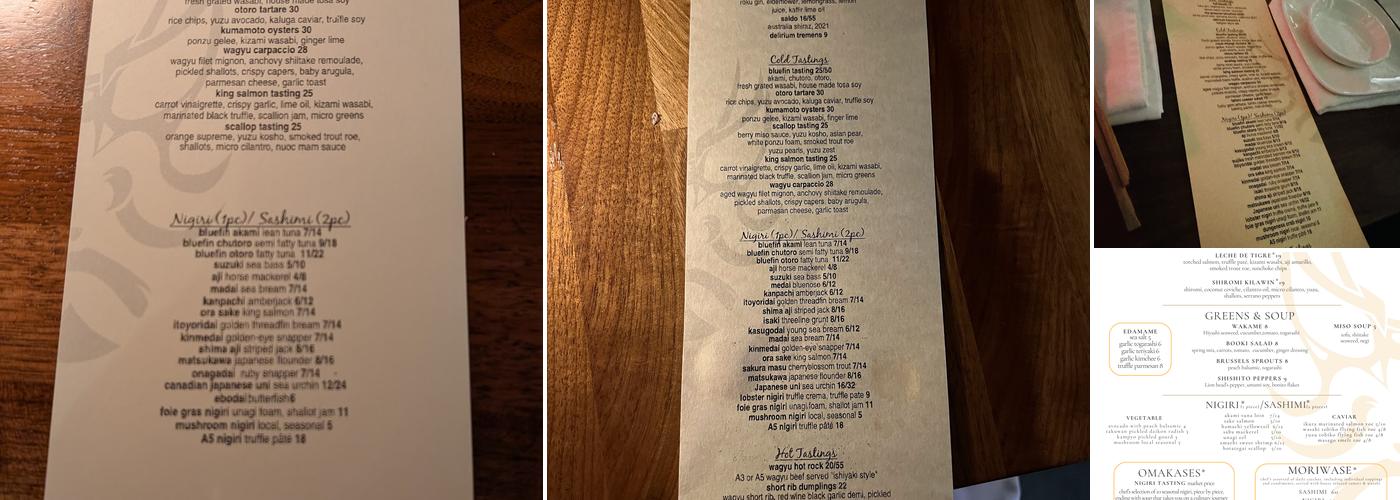 fresh grated wasabi, house made tosa soy
otoro tartare 30
rice chips, yuzu avocado, kaluga caviar, truffle soy
kumamoto oysters 30
ponzu gelee, kizami wasabi, ginger lime
wagyu carpaccio 28
wagyu filet mignon, anchovy shiitake remoulade,
pickled shallots, crispy capers, baby arugula,
parmesan cheese, garlic toast
king salmon tasting 25
carrot vinaigrette, crispy garlic, lime oil, kizami wasabi,
marinated black truffle, scallion jam, micro greens
scallop tasting 25
orange supreme, yuzu kosho, smoked trout roe,
shallots, micro cilantro, nuoc mam sauce
Nigiri (1pc)/ Sashimi (2pc)
bluefin akami lean tuna 7/14
bluefin chutoro semi fatty tuna 9/18
bluefin otoro fatty tuna 11/22
suzuki sea bass 5/10
aji horse mackerel 4/8
madai sea bream 7/14
kanpachi amberjack 6/12
ora sake king salmon 7/14
itoyoridai golden threadfin bream 7/14
kinmedai golden-eye snapper 7/14
shima aji striped jack 8/16
matsukawa japanese flounder 8/16
onagadai ruby snapper 7/14
canadian japanese uni sea urchin 12/24
ebodai butterfish 6
foie gras nigiri unagi foam, shallot jam 11
mushroom nigiri local, seasonal 5
A5 nigiri truffle pâté 18
roku gin, elderflower, lemongrass, lemon
juice, kaffir lime oil
saldo 16/55
australia shiraz, 2021
delirium tremens 9
Cold Tastings
bluefin tasting 25/50
akami, chutoro, otoro,
fresh grated wasabi, house made tosa soy
otoro tartare 30
rice chips, yuzu avocado, kaluga caviar, truffle soy
kumamoto oysters 30
ponzu gelee, kizami wasabi, finger lime
scallop tasting 25
berry miso sauce, yuzu kosho, asian pear,
white ponzu foam, smoked trout roe
yuzu pearls, yuzu zest
king salmon tasting 25
carrot vinaigrette, crispy garlic, lime oil, kizami wasabi,
marinated black truffle, scallion jam, micro greens
wagyu carpaccio 28
aged wagyu filet mignon, anchovy shiitake remoulade,
pickled shallots, crispy capers, baby arugula,
parmesan cheese, garlic toast
Nigiri (1pc)/ Sashimi (2pc)
bluefin akami lean tuna 7/14
bluefin chutoro semi fatty tuna 9/18
bluefin otoro fatty tuna 11/22
aji horse mackerel 4/8
suzuki sea bass 5/10
medai bluenose 6/12
kanpachi amberjack 6/12
itoyoridai golden threadfin bream 7/14
shima aji striped jack 8/16
isaki threeline grunt 8/16
kasugodai young sea bream 6/12
madai sea bream 7/14
kinmedai golden-eye snapper 7/14
ora sake king salmon 7/14
sakura masu cherryblossom trout 7/14
matsukawa japanese flounder 8/16
Japanese uni sea urchin 16/32
lobster nigiri truffle crema, truffle pate 9
foie gras nigiri unagi foam, shallot jam 11
mushroom nigiri local, seasonal 5
A5 nigiri truffle pâté 18
Hot Tastings
wagyu hot rock 20/55
A3 or A5 wagyu beef served "ishiyaki style"
short rib dumplings 22
wagyu short rib, red wine black garlic demi, pickled
Cold Tastings
Nigiri (1pc)/ Sashimi (2pc)
madai sea bream 7/14
ora sake king salmon 7/14
mushroom nigiri local, seasonal 5
A5 nigiri truffle pâté 18
LECHE DE TIGRE* 19
torched salmon, truffle paté, kizami wasabi, aji amarillo,
smoked trout roe, sunchoke chips
SHIROMI KILAWIN* 19
shiromi, coconut ceviche, cilantro oil, micro cilantro, yuzu,
shallots, serrano peppers
GREENS & SOUP
EDAMAME
sea salt 5
garlic togarashi 6
garlic teriyaki 6
garlic kimchee 6
truffle parmesan 8
WAKAME 8
Hiyashi seaweed, cucumber, tomato, togarashi
BOOKI SALAD 8
spring mix, carrots, tomato, cucumber, ginger dressing
BRUSSELS SPROUTS 8
peach balsamic, togarashi
SHISHITO PEPPERS 9
Lion head's pepper, umami soy, bonito flakes
MISO SOUP 5
tofu, shiitake
seaweed, negi
NIGIRI* (1 piece)/SASHIMI* (2 pieces)
VEGETABLE
avocado with peach balsamic 4
takuwan pickled daikon radish 3
kampyo pickled gourd 3
mushroom local seasonal 5
akami tuna loin 7/14
sake salmon 5/10
hamachi yellowtail 6/12
saba mackerel 5/10
unagi eel 5/10
amaebi sweet shrimp 6/12
hotategai scallop 5/10
CAVIAR
ikura marinated salmon roe 5/10
wasabi tobiko flying fish roe 4/8
yuzu tobiko flying fish roe 4/8
masago smelt roe 4/8
OMAKASES*
NIGIRI TASTING market price
chef's selection of 10 seasonal nigiri, piece by piece,
MORIWASE*
SASHIMI 60